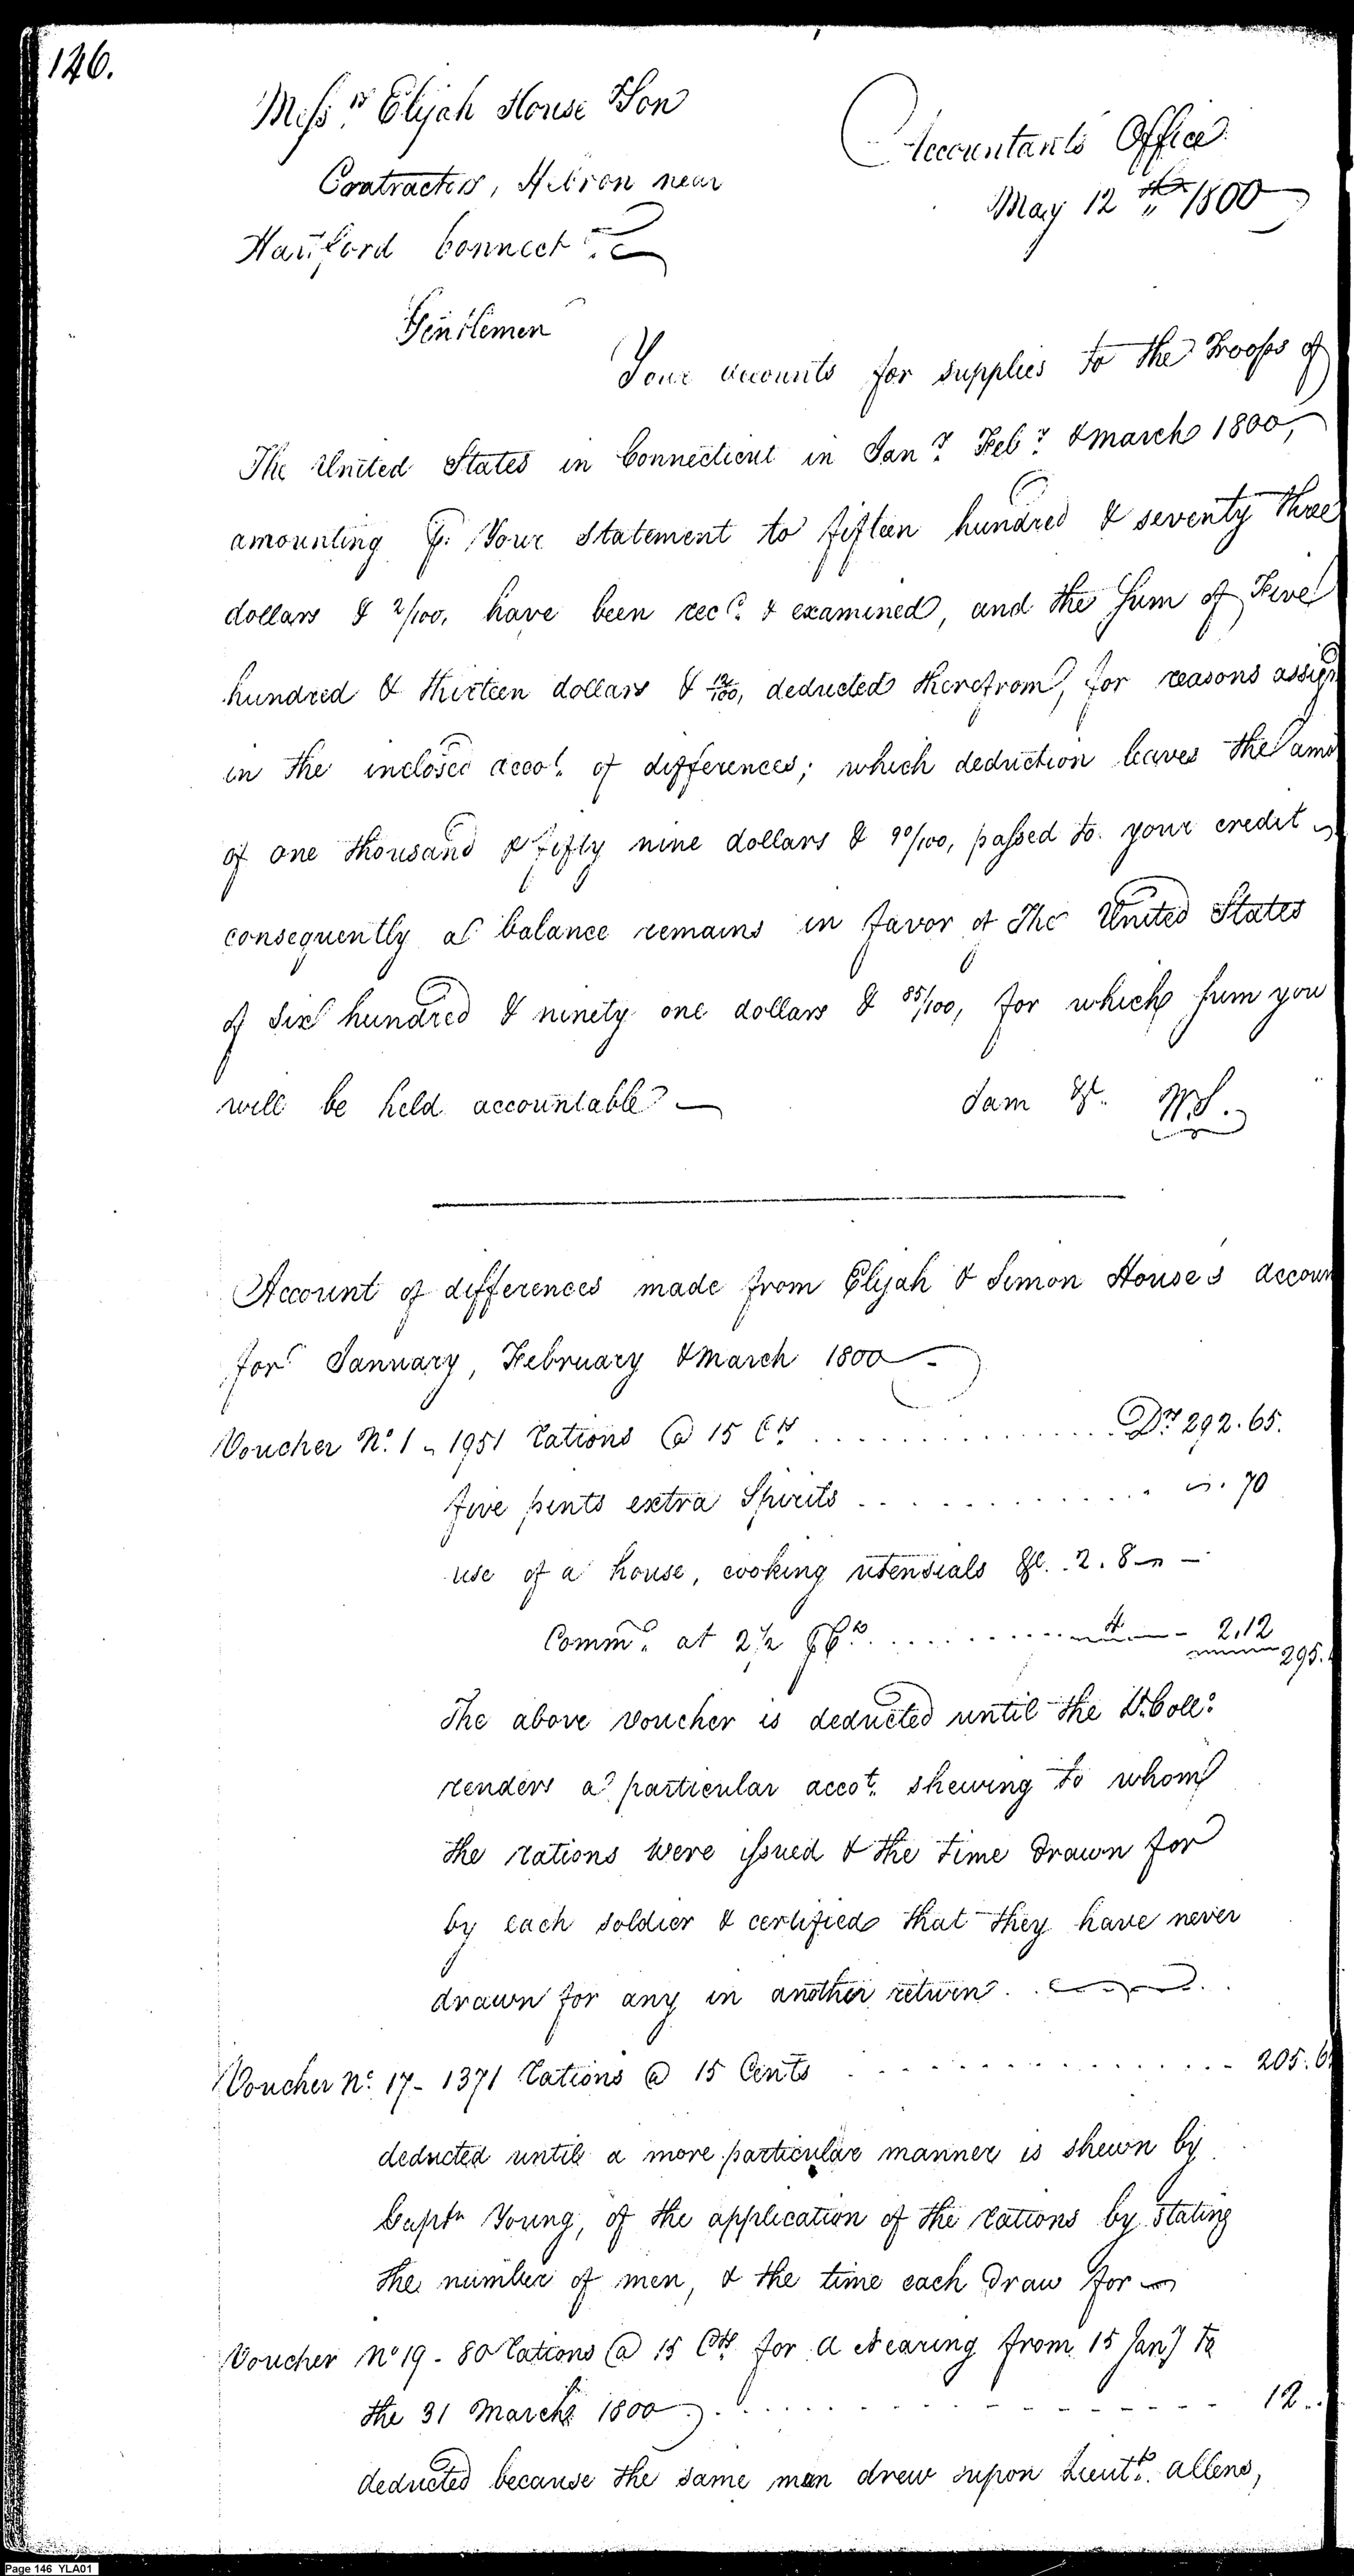 146.
Mess.rs Elijah House & Son
Contractors, Hebron near
Hartford Connect.t
Accountants Office
May 12th 1800
Gentlemen
Your accounts for supplies to the Troops of
The United States in Connecticut in Jan.y Feb.y & march 1800,
amounting p. Your Statement to fifteen hundred & seventy three
dollars & 2/100, have been rec.d & examined, and the Sum of Five
hundred & thirteen dollars & 12/100, deducted therefrom, for reasons assign
in the inclosed acco.t of differences; which deduction leaves the amo
of one thousand & fifty nine dollars & 90/100, passed to your credit
consequently a balance remains in favor of The United States
of Six hundred & ninety one dollars & 85/100, for which sum you
will be held accountable
I am &c. W.S.
Account of differences made from Elijah & Simon House's accoun
for January, February & march 1800
Voucher No. 1 - 1951 Rations @ 15 Cts ............ Drs 292.65.
five pints extra Spirits ............ 70
use of a house, cooking utensials &c. 2.8
Comm.n at 2 1/2 ............ 4 2.12
295.
The above voucher is deducted until the Lt. Coll.o
renders a particular acco.t shewing to whom
the rations were issued & the time drawn for
by each soldier & certified that they have never
drawn for any in another return.
Voucher No. 17 - 1371 Rations @ 15 Cents ............ 205.6
deducted until a more particular manner is shewn by
Captn Young, of the application of the rations by stating
the number of men, & the time each draw for
Voucher No 19 - 80 Rations @ 15 Cts for A Nearing from 15 Jany to
the 31 March 1800 ............ 12..
deducted because the same man drew upon Lieut.t Allens,
Page 146 YLA01